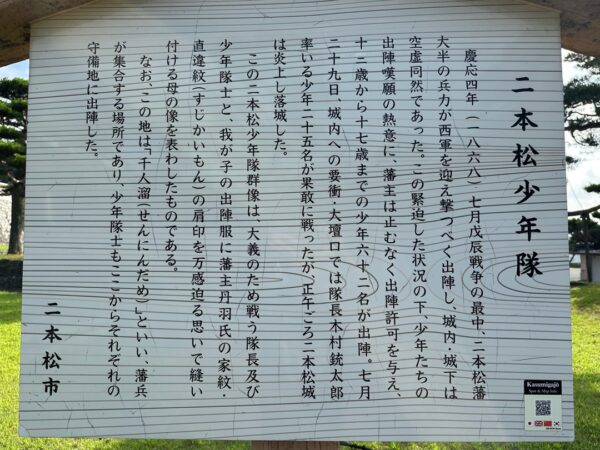 二本松少年隊
慶応四年（一八六八）七月戊辰戦争の最中、二本松藩
大半の兵力が西軍を迎え撃つべく出陣し、城内、城下は
空虚同然であった。この緊迫した状況の下、少年たちの
出陣嘆願の熱意に、藩主は止むなく出陣許可を与え、
十二歳から十七歳までの少年六十二名が出陣。七月
二十九日、城内への要衝・大壇口では隊長木村銃太郎
率いる少年二十五名が果敢に戦ったが、正午ごろ二本松城
は炎上し落城した。
この二本松少年隊群像は、大義のため戦う隊長及び
少年隊士と、我が子の出陣服に藩主丹羽氏の家紋・
直違紋（すじかいもん）の肩印を万感迫る思いで縫い
付ける母の像を表わしたものである。
なお、この地は「千人溜（せんにんだめ）」といい、藩兵
が集合する場所であり、少年隊士もここからそれぞれの
守備地に出陣した。
二本松市
Kasumigajō